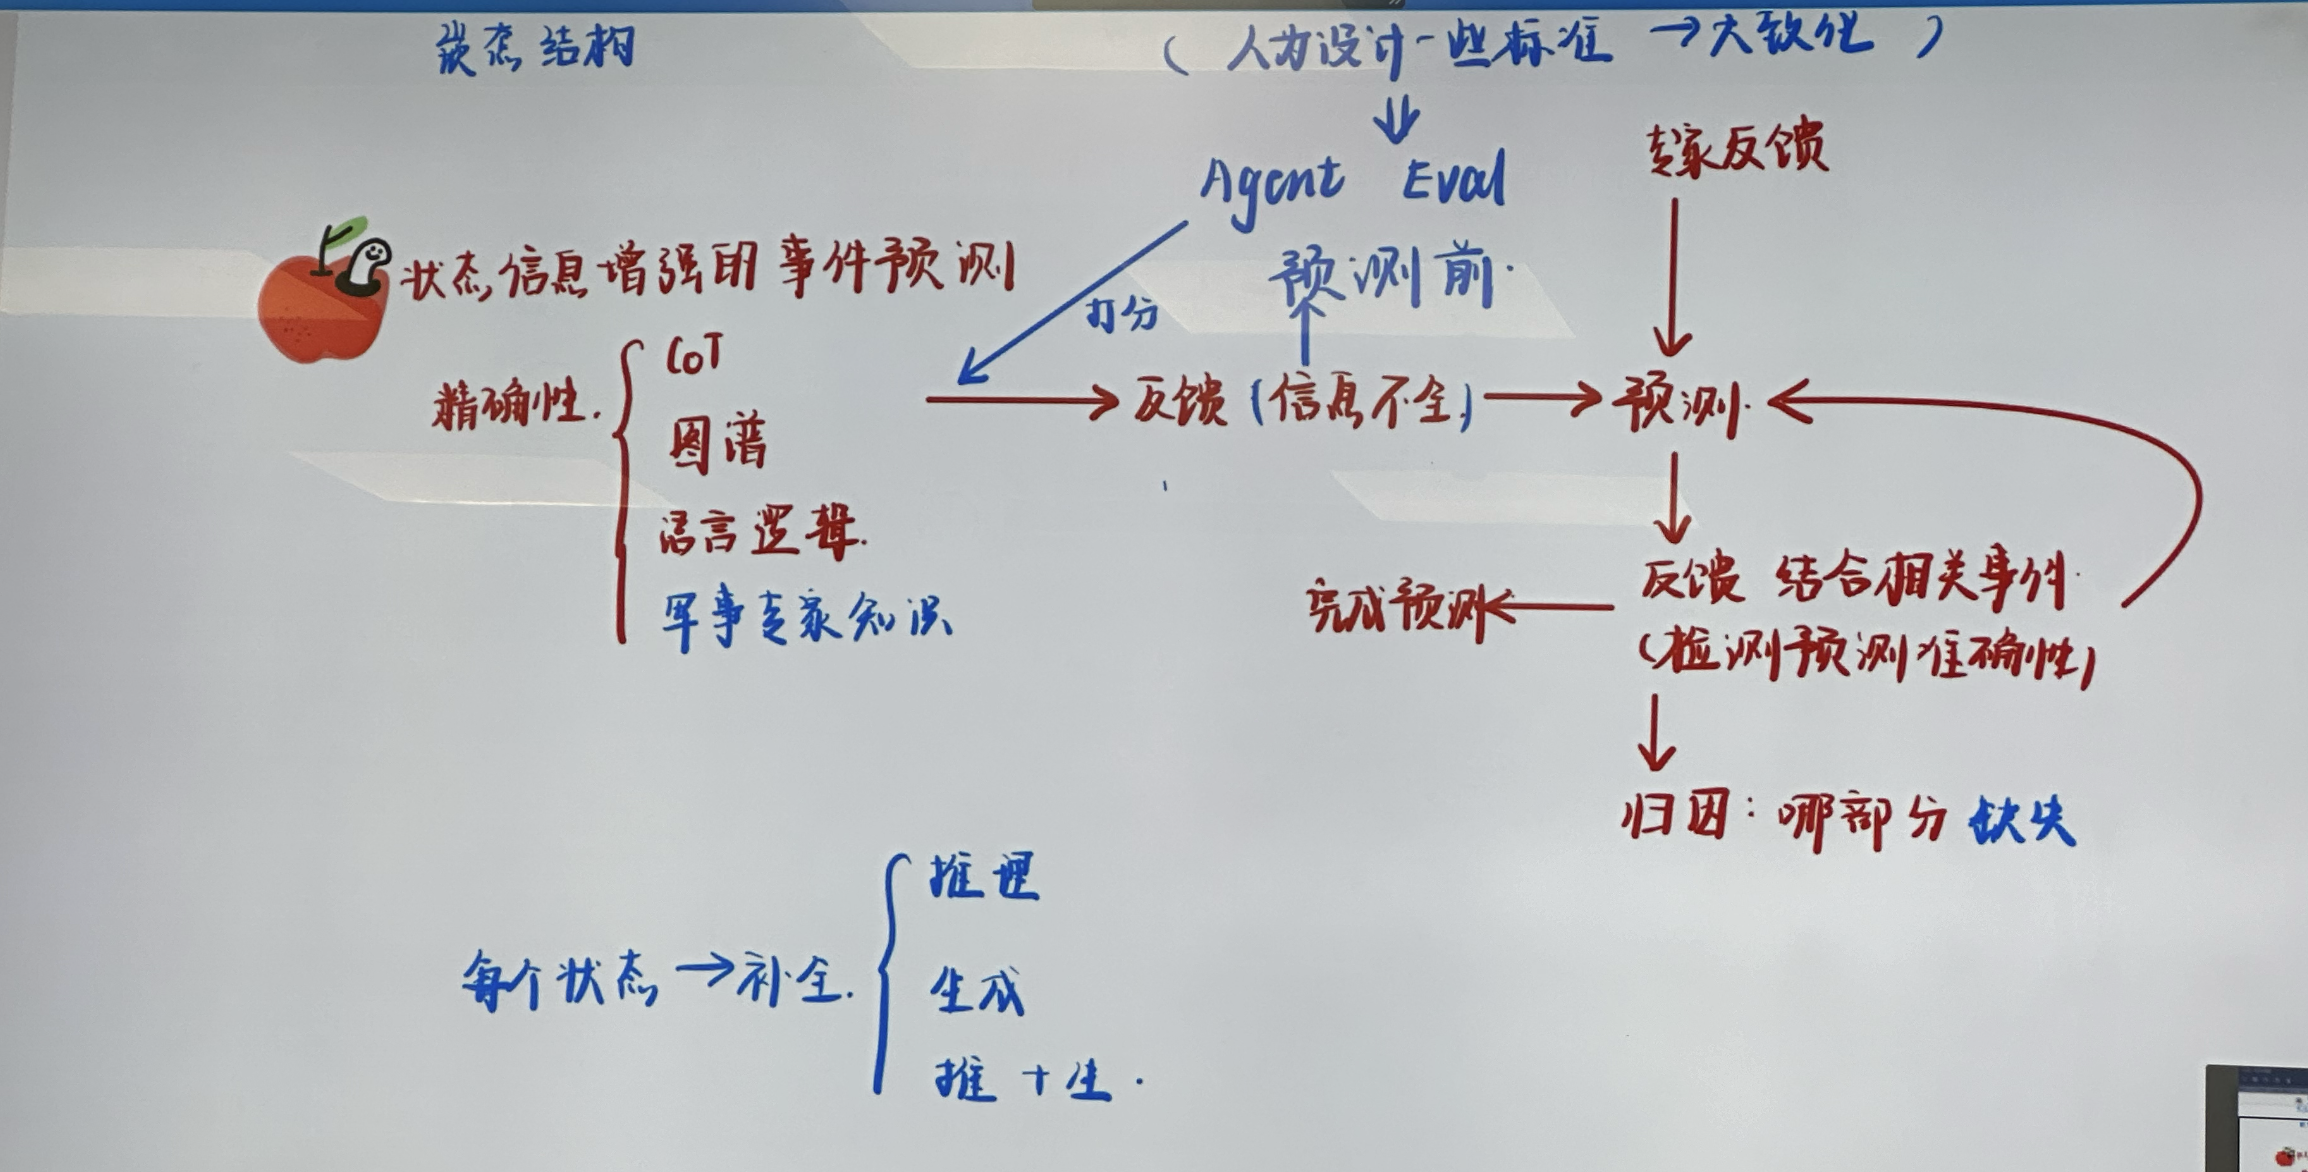 状态结构
(人为设计一些标准 →大致化)
Agent Eval
专家反馈
状态信息增强的事件预测
预测前.
打分
精确性.
CoT
图谱
语言逻辑.
军事专家知识
反馈(信息不全)
预测.
反馈 结合相关事件.
(检测预测准确性)
完成预测
归因:哪部分缺失
每个状态→补全.
推理
生成
推+生.